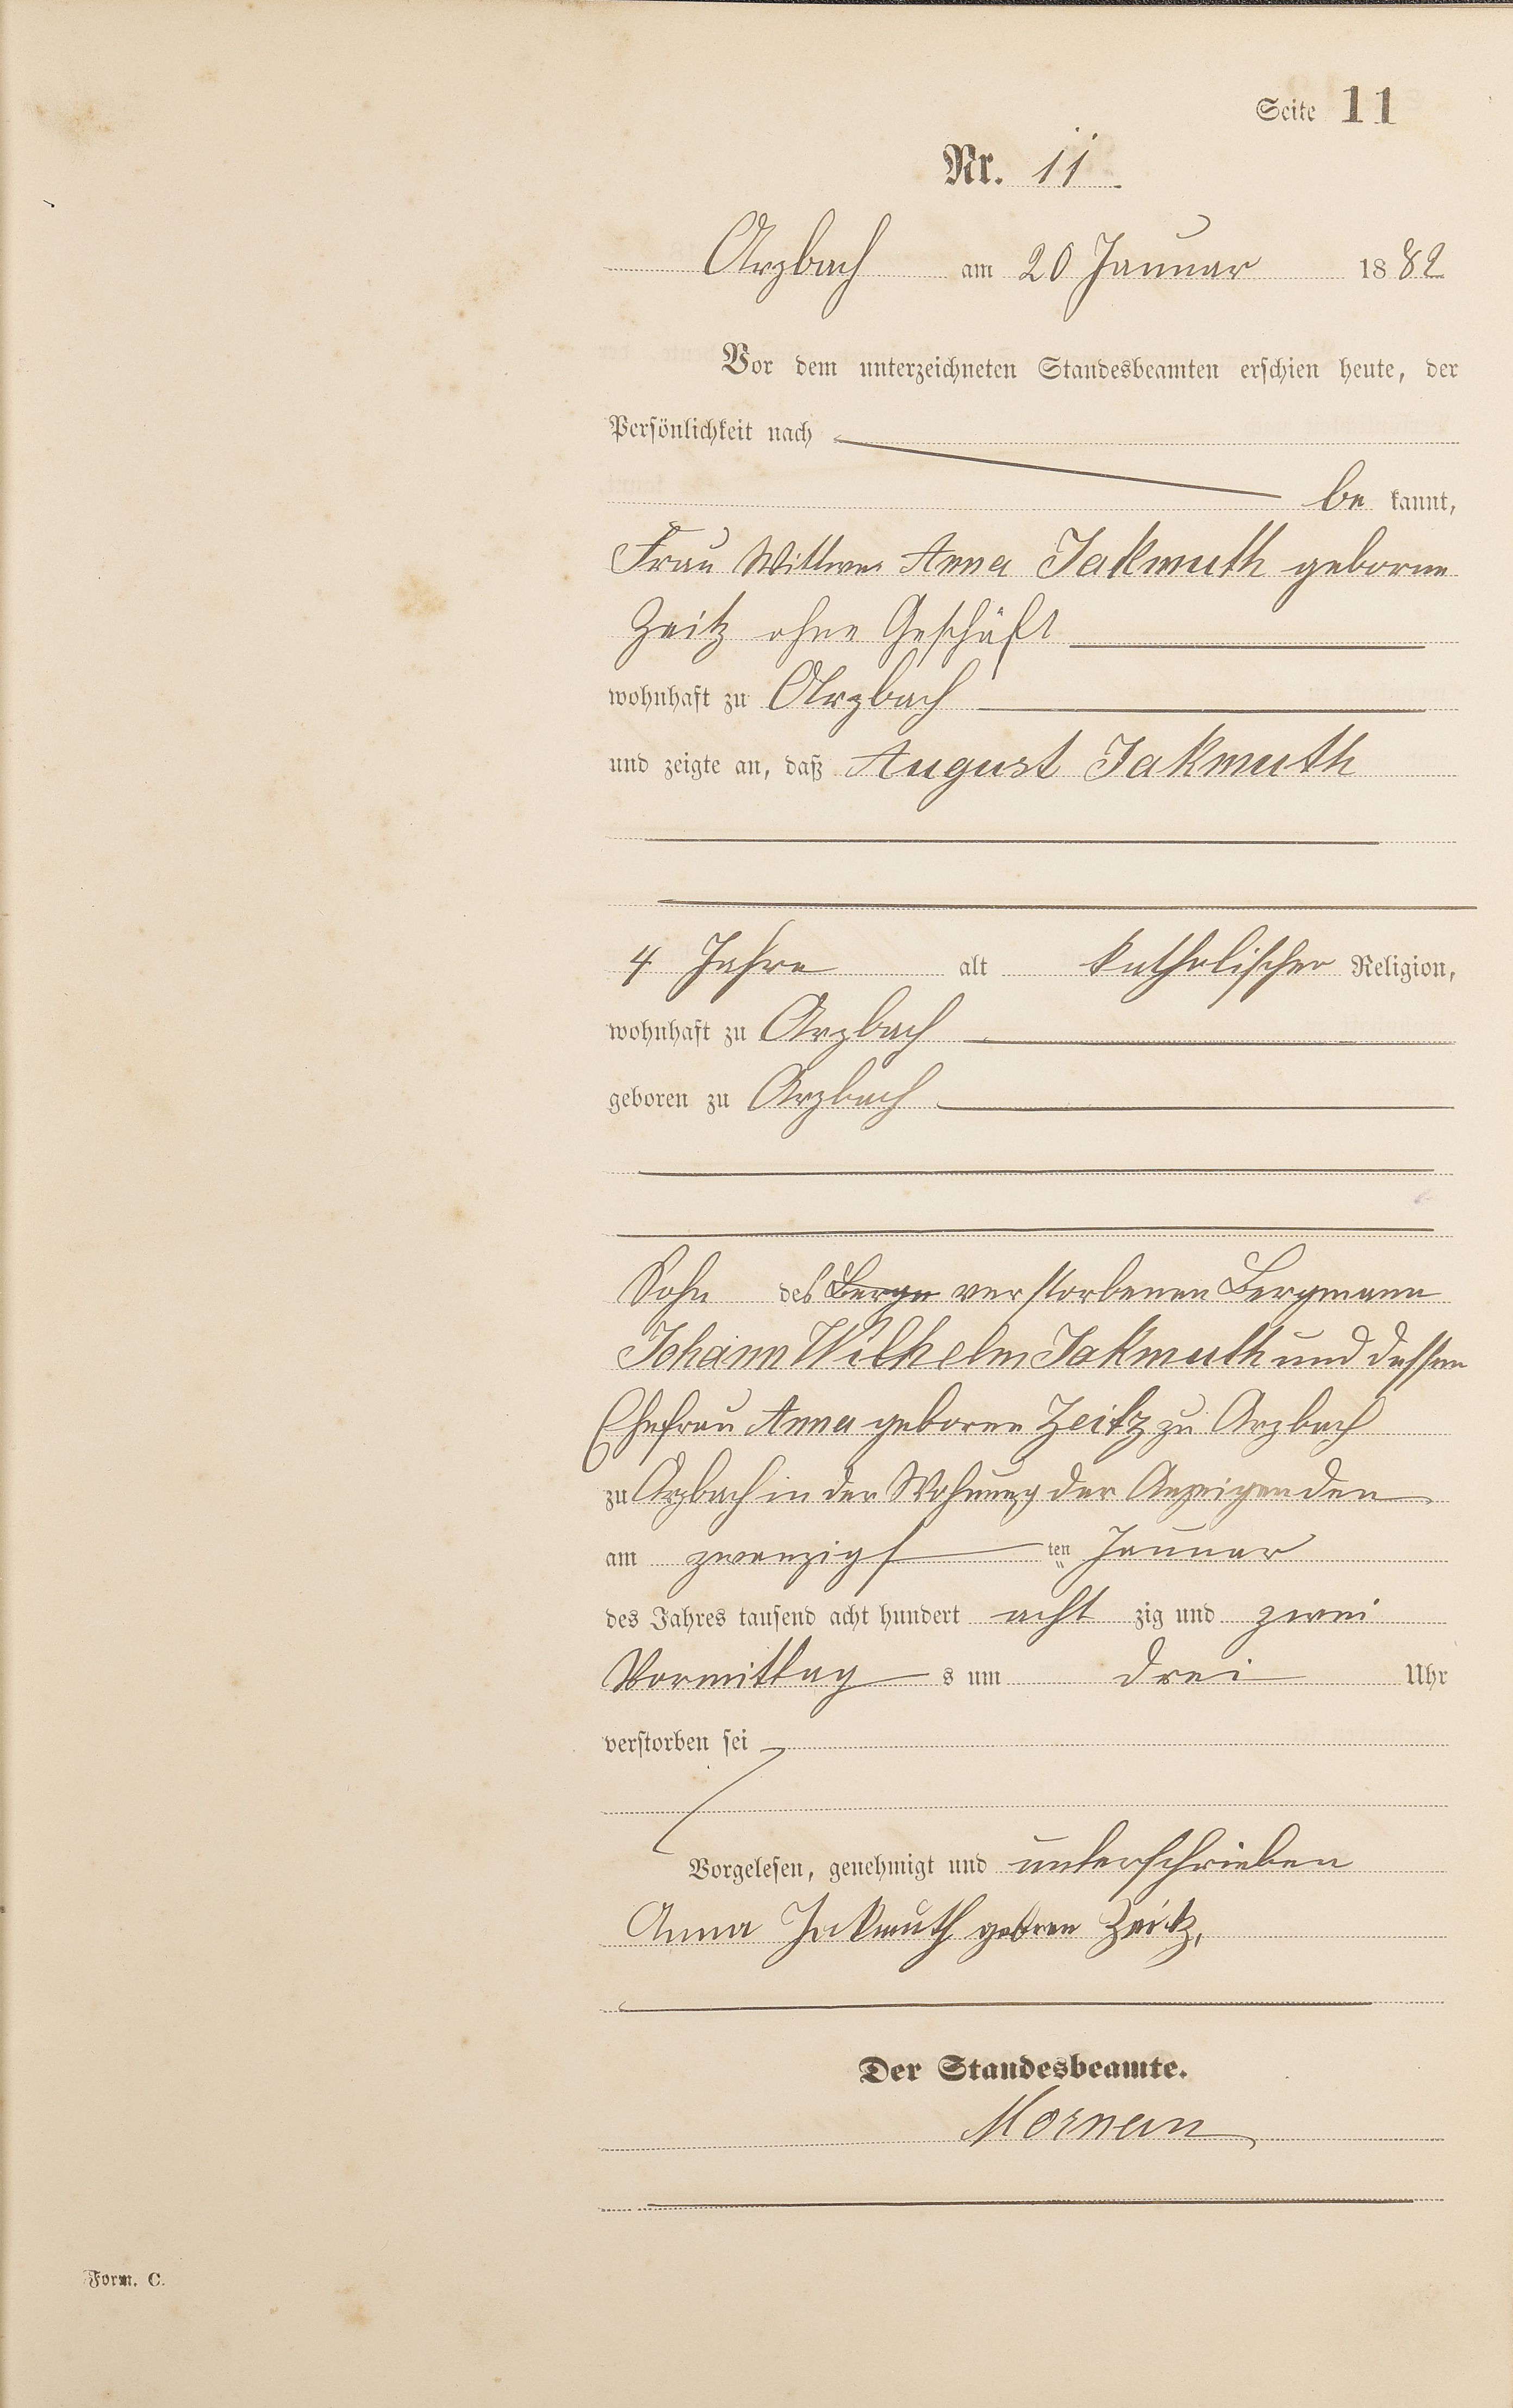 Seite 11
Nr. 11
Arzbach am 20 Januar 1882
Vor dem unterzeichneten Standesbeamten erschien heute, der
Persönlichkeit nach
be kannt,
Frau Wittwe Anna Jakmuth geborne
Zeitz ohne Geschäft
wohnhaft zu Arzbach
und zeigte an, daß August Jakmuth
4 Jahre alt katholischer Religion,
wohnhaft zu Arzbach
geboren zu Arzbach
Sohn des Bergn verstorbenen Bergmann
Johann Wilhelm Jakmuth und dessen
Ehefrau Anna geborne Zeitz zu Arzbach
zu Arzbach in der Wohnung der Anzeigenden
am zwanzigs ten Januar
des Jahres tausend acht hundert acht zig und zwei
Vormittag s um drei Uhr
verstorben sei
Vorgelesen, genehmigt und unterschrieben
Anna Jakmuth geboren Zeitz,
Der Standesbeamte.
Form. C.